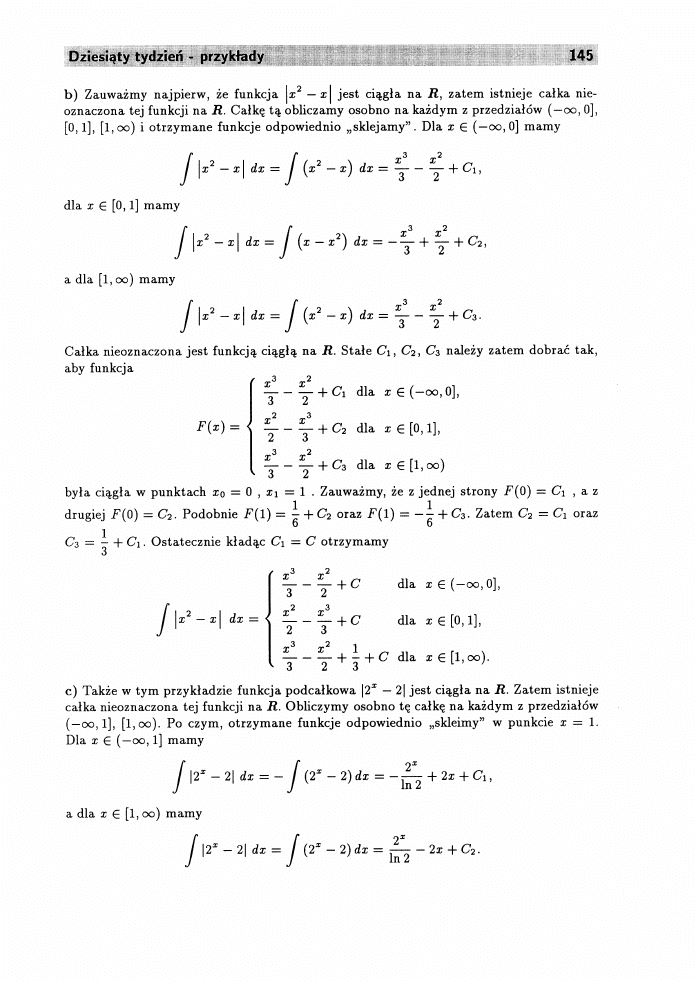 Dziesiąty tydzień - przykłady 145
b) Zauważmy najpierw, że funkcja |x² − x| jest ciągła na R, zatem istnieje całka nie-
oznaczona tej funkcji na R. Całkę tą obliczamy osobno na każdym z przedziałów (−∞, 0],
[0, 1], [1, ∞) i otrzymane funkcje odpowiednio „sklejamy”. Dla x ∈ (−∞, 0] mamy
∫ |x² − x| dx = ∫ (x² − x) dx = x³/3 − x²/2 + C₁,
dla x ∈ [0, 1] mamy
∫ |x² − x| dx = ∫ (x − x²) dx = −x³/3 + x²/2 + C₂,
a dla [1, ∞) mamy
∫ |x² − x| dx = ∫ (x² − x) dx = x³/3 − x²/2 + C₃.
Całka nieoznaczona jest funkcją ciągłą na R. Stałe C₁, C₂, C₃ należy zatem dobrać tak,
aby funkcja
x³/3 − x²/2 + C₁ dla x ∈ (−∞, 0],
F(x) = { x²/2 − x³/3 + C₂ dla x ∈ [0, 1],
x³/3 − x²/2 + C₃ dla x ∈ [1, ∞)
była ciągła w punktach x₀ = 0 , x₁ = 1 . Zauważmy, że z jednej strony F(0) = C₁ , a z
drugiej F(0) = C₂. Podobnie F(1) = 1/6 + C₂ oraz F(1) = −1/6 + C₃. Zatem C₂ = C₁ oraz
C₃ = 1/3 + C₁. Ostatecznie kładąc C₁ = C otrzymamy
x³/3 − x²/2 + C dla x ∈ (−∞, 0],
∫ |x² − x| dx = { x²/2 − x³/3 + C dla x ∈ [0, 1],
x³/3 − x²/2 + 1/3 + C dla x ∈ [1, ∞).
c) Także w tym przykładzie funkcja podcałkowa |2ˣ − 2| jest ciągła na R. Zatem istnieje
całka nieoznaczona tej funkcji na R. Obliczymy osobno tę całkę na każdym z przedziałów
(−∞, 1], [1, ∞). Po czym, otrzymane funkcje odpowiednio „skleimy” w punkcie x = 1.
Dla x ∈ (−∞, 1] mamy
∫ |2ˣ − 2| dx = − ∫ (2ˣ − 2) dx = −2ˣ/ln 2 + 2x + C₁,
a dla x ∈ [1, ∞) mamy
∫ |2ˣ − 2| dx = ∫ (2ˣ − 2) dx = 2ˣ/ln 2 − 2x + C₂.